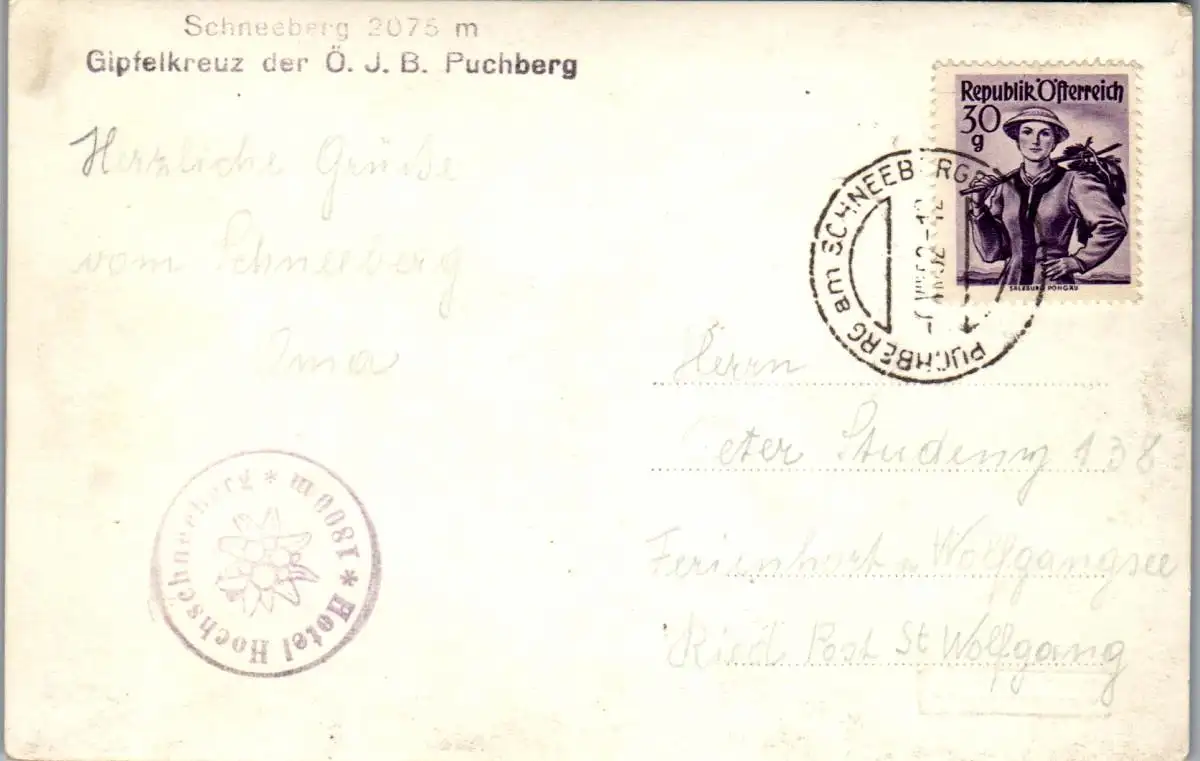 Schneeberg 2075 m
Gipfelkreuz der Ö. J. B. Puchberg
Herzliche Grüße
vom Schneeberg
Ima
Republik Österreich
30
g
SALZBURG PONGAU
PUCHBERG am SCHNEEBERGE
VIII 52-12
Herrn
eter Studeny 138
Ferienhort Wolfgangsee
Ried Post St Wolfgang
* Hotel Hochschneeberg * 1800m